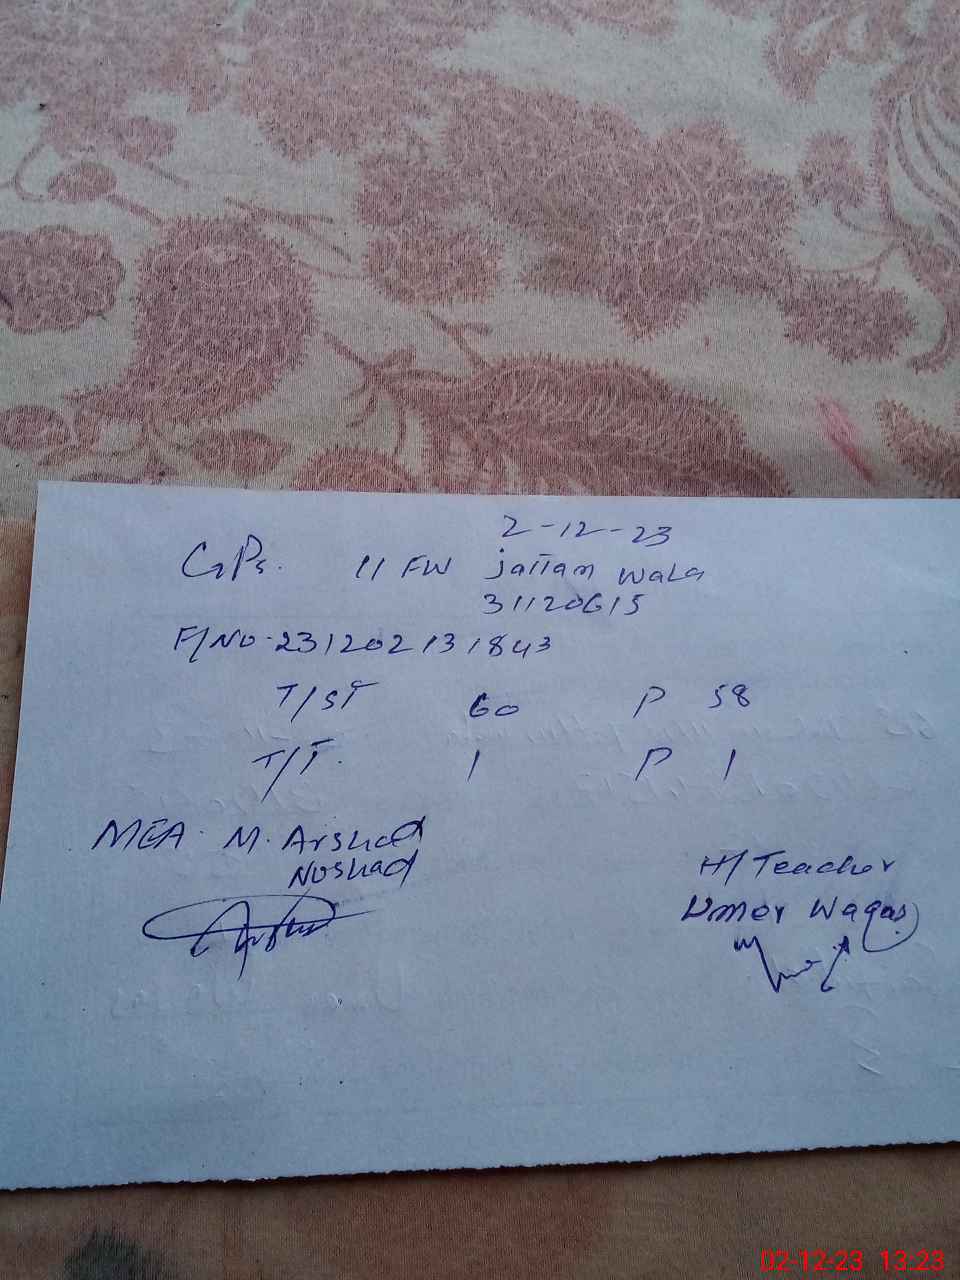 2-12-23
GPS. 11 FW jattan wala
31120615
F/NO. 231202131843
T/ST 60 P 58
T/T. 1 P 1
MEA. M. Arshad
Noshad
H/Teacher
Umer Waqas
02-12-23 13:23